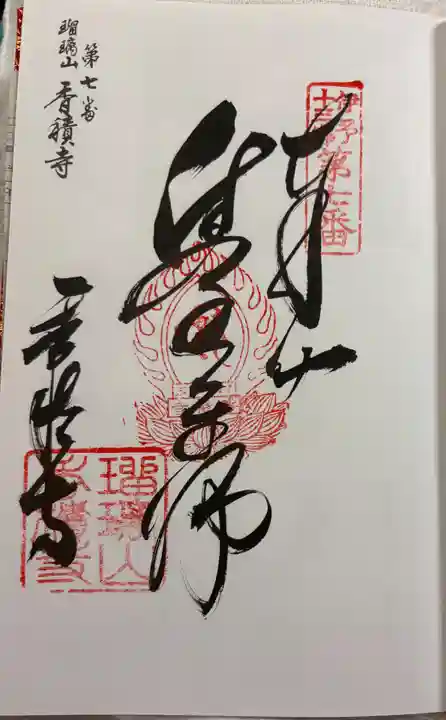 伊予十三仏第七番
奉
薬師如来
香積寺
瑠璃山
香積寺
第七番
瑠璃山 香積寺